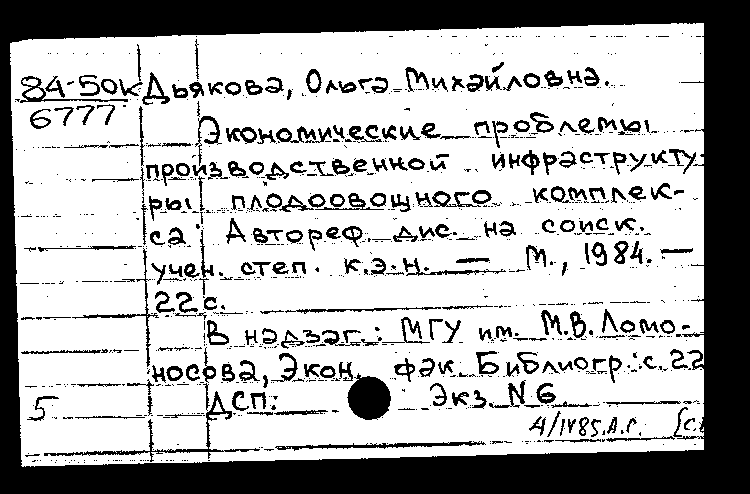 84-50к Дьякова, Ольга Михайловна.
6777
Экономические проблемы
производственной инфраструкту-
ры плодоовощного комплек-
са. Автореф. дис. на соиск.
учен. степ. к.э.н. — М., 1984. —
22 с.
В надзаг.: МГУ им. М.В. Ломо-
носова, Экон. фак. Библиогр.: с. 22
5 ДСП: Экз. N 6.
4/IV85.А.Г.